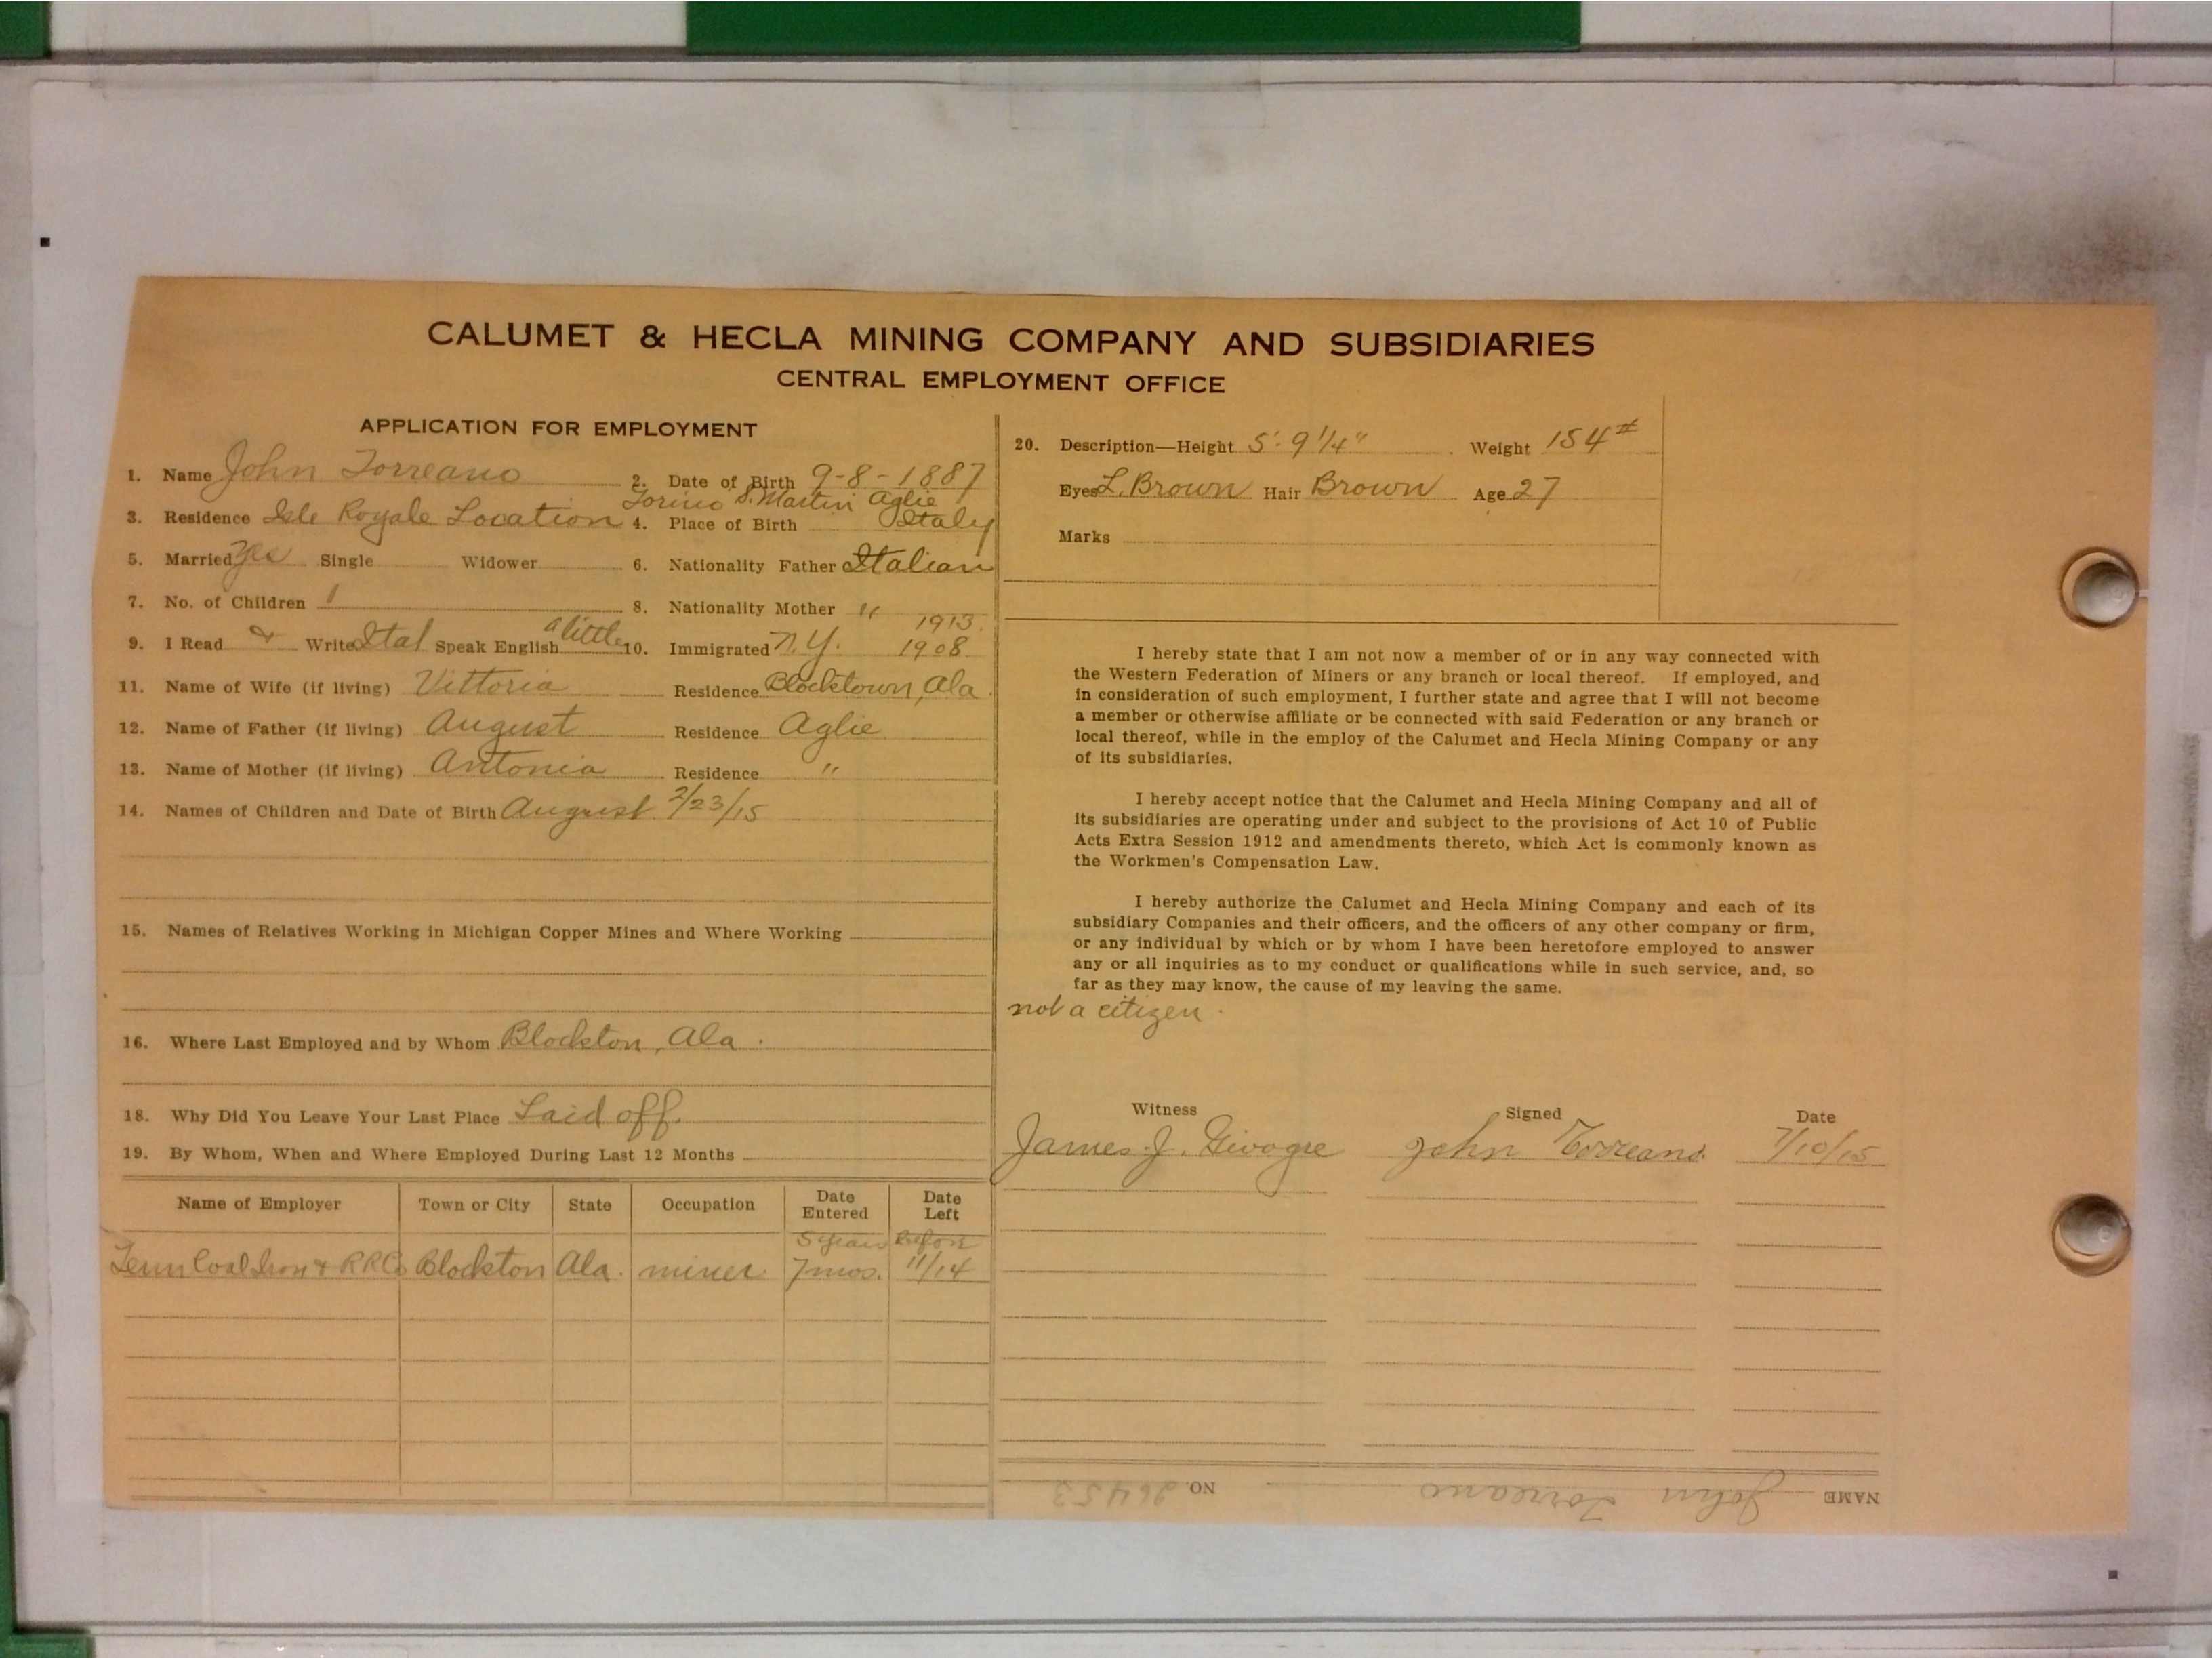 CALUMET & HECLA MINING COMPANY AND SUBSIDIARIES
CENTRAL EMPLOYMENT OFFICE
APPLICATION FOR EMPLOYMENT
1. Name John Torreano 2. Date of Birth 9-8-1887
Torino S. Martin Aglie
3. Residence Isle Royale Location 4. Place of Birth Italy
5. Married Yes Single Widower 6. Nationality Father Italian
7. No. of Children 1 8. Nationality Mother "
1913.
9. I Read & Write Ital Speak English a little 10. Immigrated N.Y. 1908
11. Name of Wife (if living) Vittoria Residence Blocktown, Ala.
12. Name of Father (if living) August Residence Aglie
13. Name of Mother (if living) Antonia Residence "
14. Names of Children and Date of Birth August 2/23/15
15. Names of Relatives Working in Michigan Copper Mines and Where Working
16. Where Last Employed and by Whom Blockton, Ala.
18. Why Did You Leave Your Last Place Laid off.
19. By Whom, When and Where Employed During Last 12 Months
Name of Employer Town or City State Occupation Date Entered Date Left
5 years Before
Tenn Coal Iron & RR Co Blockton Ala. miner 7 mos. 11/14
20. Description—Height 5' 9 1/4" Weight 154#
Eyes L. Brown Hair Brown Age 27
Marks
I hereby state that I am not now a member of or in any way connected with
the Western Federation of Miners or any branch or local thereof. If employed, and
in consideration of such employment, I further state and agree that I will not become
a member or otherwise affiliate or be connected with said Federation or any branch or
local thereof, while in the employ of the Calumet and Hecla Mining Company or any
of its subsidiaries.
I hereby accept notice that the Calumet and Hecla Mining Company and all of
its subsidiaries are operating under and subject to the provisions of Act 10 of Public
Acts Extra Session 1912 and amendments thereto, which Act is commonly known as
the Workmen's Compensation Law.
I hereby authorize the Calumet and Hecla Mining Company and each of its
subsidiary Companies and their officers, and the officers of any other company or firm,
or any individual by which or by whom I have been heretofore employed to answer
any or all inquiries as to my conduct or qualifications while in such service, and, so
far as they may know, the cause of my leaving the same.
not a citizen.
Witness Signed Date
James J. John Torreano. 7/10/15
NAME John Torreano NO. 26453